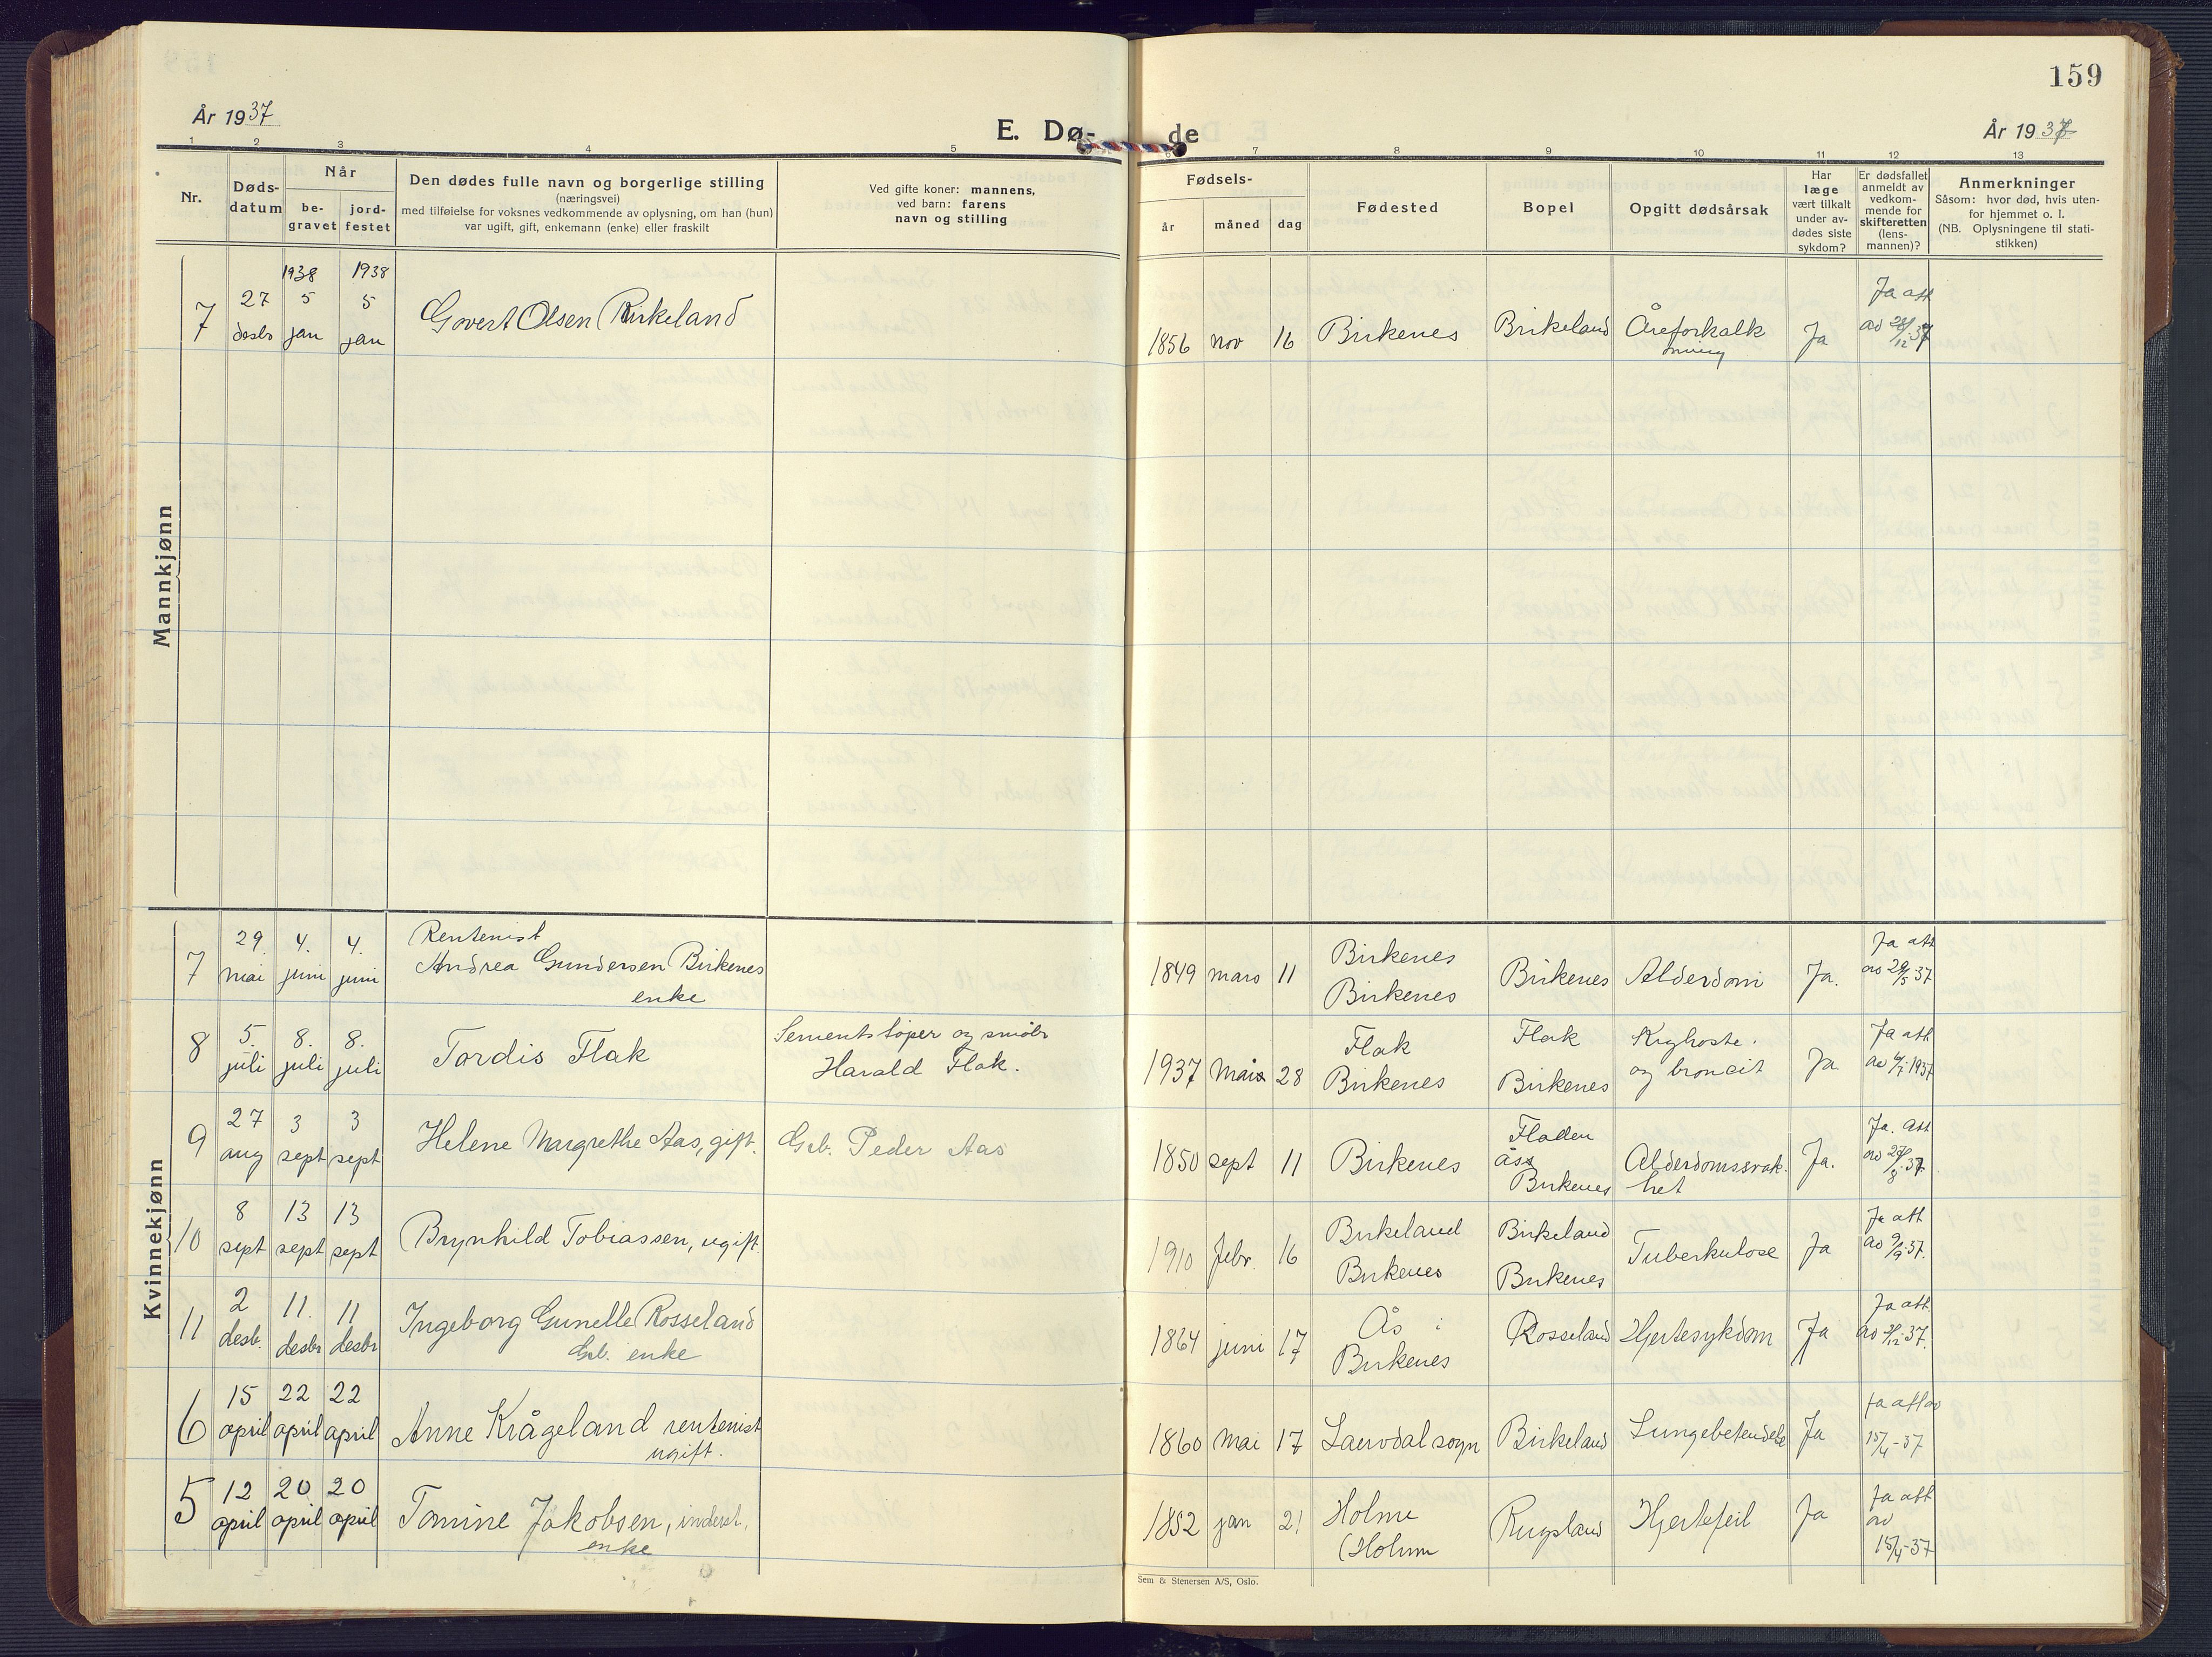 159
År 1937
E. Dø-
de
År 1937
1 2 3 4 5
6 7 8 9 10 11 12 13
Nr.
Døds-
datum
Når
be-
gravet
jord-
festet
Den dødes fulle navn og borgerlige stilling
(næringsvei)
med tilføielse for voksnes vedkommende av oplysning, om han (hun)
var ugift, gift, enkemann (enke) eller fraskilt
Ved gifte koner: mannens,
ved barn: farens
navn og stilling
Fødsels-
år
måned
dag
Fødested
Bopel
Opgitt dødsårsak
Har
læge
vært tilkalt
under av-
dødes siste
sykdom?
Er dødsfallet
anmeldt av
vedkom-
mende for
skifteretten
(lens-
mannen)?
Anmerkninger
Såsom: hvor død, hvis uten-
for hjemmet o. l.
(NB. Oplysningene til stati-
stikken)
Mannkjønn
7
27
desbr
1938
5
jan
1938
5
jan
Govert Olsen Birkeland
1856
nov
16
Birkenes
Birkeland
Åreforkalk
ning
Ja
Ja att
av 28/12 37
Kvinnekjønn
7
29
mai
4.
juni
4.
juni
Rentenist
Andrea Gundersen Birkenes
enke
1849
mars
11
Birkenes
Birkenes
Birkenes
Alderdom
Ja.
Ja att
av 29/5 37
8
5.
juli
8.
juli
8.
juli
Tordis Flak
Sementstøper og småbr
Harald Flak.
1937
Mai
28
Flak
Birkenes
Flak
Birkenes
Kighoste
og broncit
Ja
Ja att
av 6/7 1937
9
27
aug
3
sept
3
sept
Helene Margrethe Aas, gift.
Grb. Peder Aas
1850
sept
11
Birkenes
Fladen
ås
Birkenes
Alderdomssvak
het
Ja.
Ja. att
av 28/8 37.
10
8
sept
13
sept
13
sept
Brynhild Tobiassen, ugift.
1910
febr.
16
Birkeland
Birkenes
Birkeland
Birkenes
Tuberkulose
Ja
Ja att
av 9/9 37.
11
2
desb.
11.
desbr
11
desbr
Ingeborg Gunelle Rosseland
Grb. enke
1864
juni
17
Ås i
Birkenes
Rosseland
Hjertesykdom
Ja
Ja att.
av 3/12 37.
6
15
april
22
april
22
april
Anne Krågeland rentenist
ugift.
1860
Mai
17
Laurdal sogn
Birkeland
Lungebetendelse
Ja
Ja att av
15/4-37
5
12
april
20
april
20
april
Tomine Jakobsen, inderst,
enke
1852
jan
21
Holme
(Holum
Rugsland
Hjertefeil
Ja
Ja att
av
15/4-37
Sem & Stenersen A/S, Oslo.